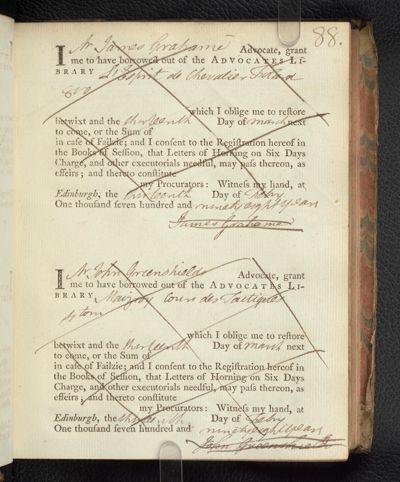 88.
I Mr James Grahame Advocate, grant
me to have borrowed out of the ADVOCATES LI-
BRARY L'Esprit de Chevalier Folard
8vo
which I oblige me to reſtore
betwixt and the thirteenth Day of March next
to come, or the Sum of
in caſe of Failzie; and I conſent to the Regiſtration hereof in
the Books of Seſſion, that Letters of Horning on Six Days
Charge, and other executorials needful, may paſs thereon, as
effeirs; and thereto conſtitute
my Procurators: Witneſs my hand, at
Edinburgh, the thirteenth Day of Febry
One thouſand ſeven hundred and ninety eight years
James Grahame
I Mr John Greenshields Advocate, grant
me to have borrowed out of the ADVOCATES LI-
BRARY, Maizroy Cours de Tactique
4 tom
which I oblige me to reſtore
betwixt and the thirteenth Day of March next
to come, or the Sum of
in caſe of Failzie; and I conſent to the Regiſtration hereof in
the Books of Seſſion, that Letters of Horning on Six Days
Charge, and other executorials needful, may paſs thereon, as
effeirs; and thereto conſtitute
my Procurators: Witneſs my hand, at
Edinburgh, the thirteenth Day of Febry
One thouſand ſeven hundred and ninety eight years
John Greenshields